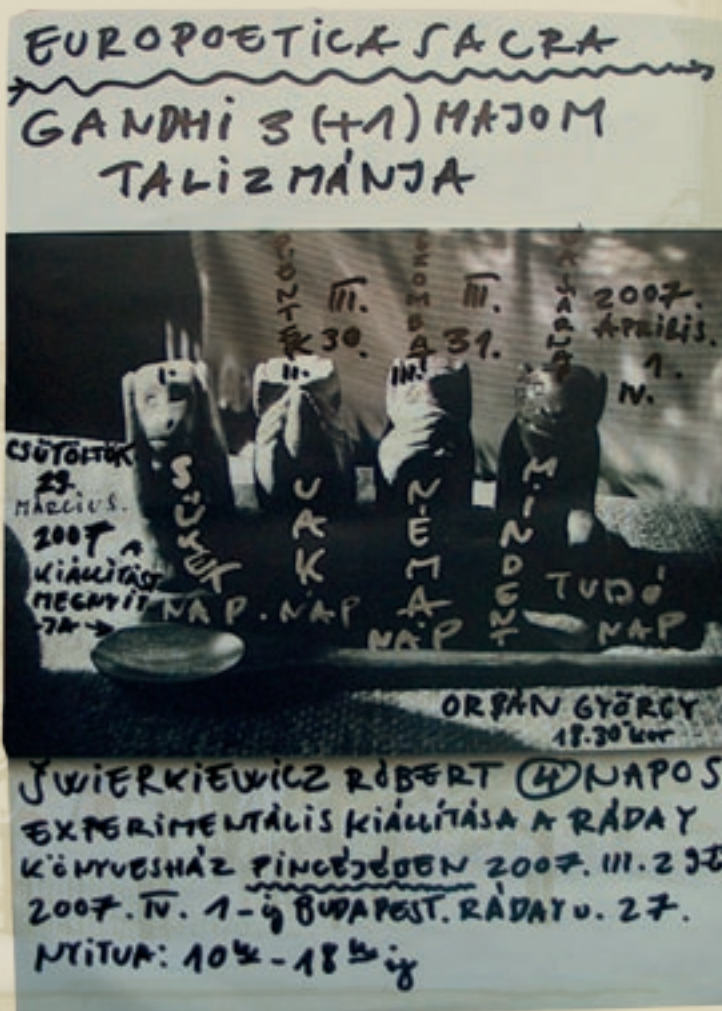 EUROPOETICA SACRA
GANDHI 3 (+1) MAJOM
TALIZMÁNJA
PÉNTEK III. 30.
SZOMBAT III. 31.
VASÁRNAP 2007. ÁPRILIS. 1.
I. II. III. IV.
CSÜTÖRTÖK
29.
MÁRCIUS.
2007 A
KIÁLLÍTÁST
MEGNYIT
JA →
SÜKET NAP.
VAK NAP
NÉMA NAP
MINDENT TUDÓ NAP
ORBÁN GYÖRGY
18.30 kor
SWIERKIEWICZ RÓBERT 4 NAPOS
EXPERIMENTÁLIS KIÁLLÍTÁSA A RÁDAY
KÖNYVESHÁZ PINCÉJÉBEN 2007. III. 29
2007. IV. 1-ig BUDAPEST. RÁDAY U. 27.
NYITVA: 10 - 18 ig